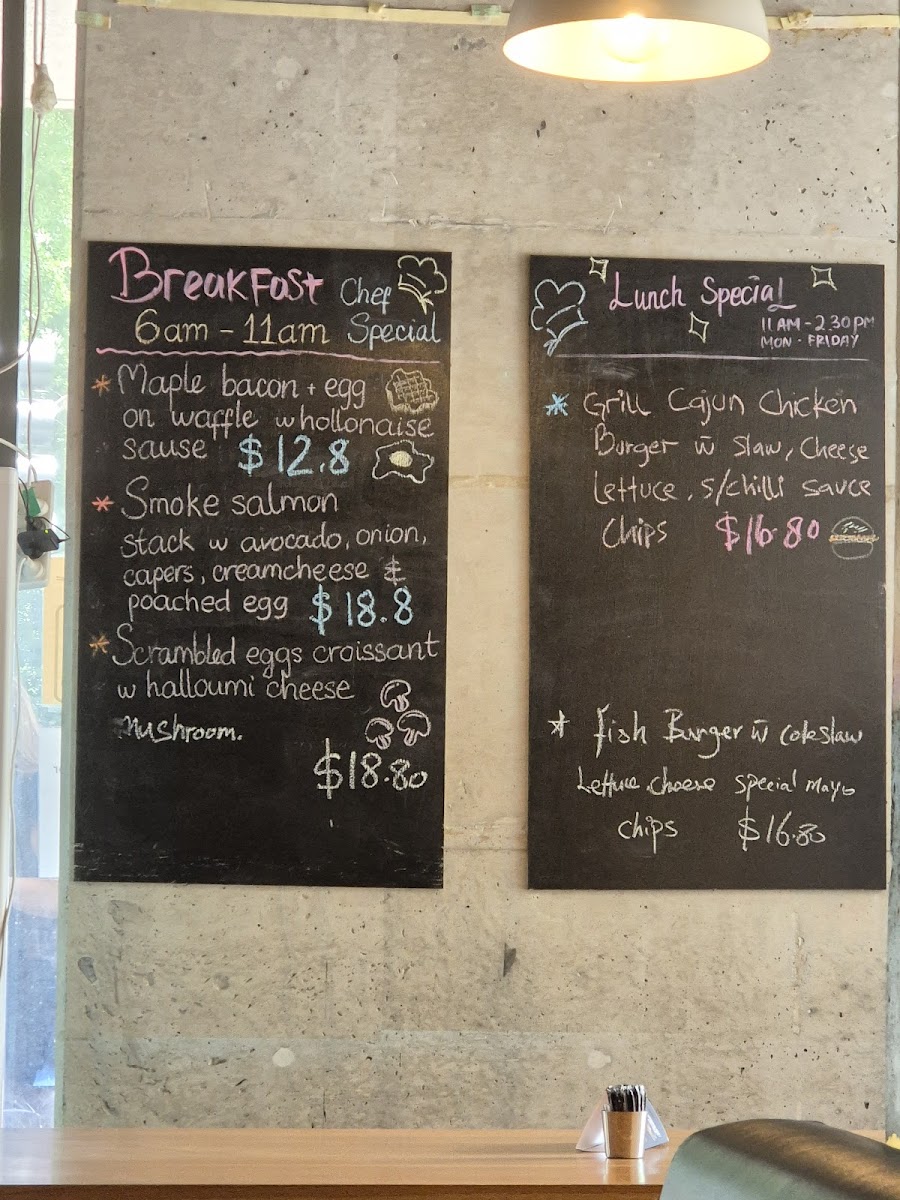 BreakFast Chef
6am - 11am Special
* Maple bacon + egg
on waffle w hollonaise
sause $12.8
* Smoke salmon
stack w avocado, onion,
capers, creamcheese &
poached egg $18.8
* Scrambled eggs croissant
w halloumi cheese
Mushroom.
$18.80
Lunch Special
11AM - 2.30PM
MON - FRIDAY
* Grill Cajun Chicken
Burger w̄ slaw, Cheese
Lettuce, s/chilli sauce
Chips $16.80
* Fish Burger w̄ coleslaw
Lettuce, cheese special mayo
chips $16.80